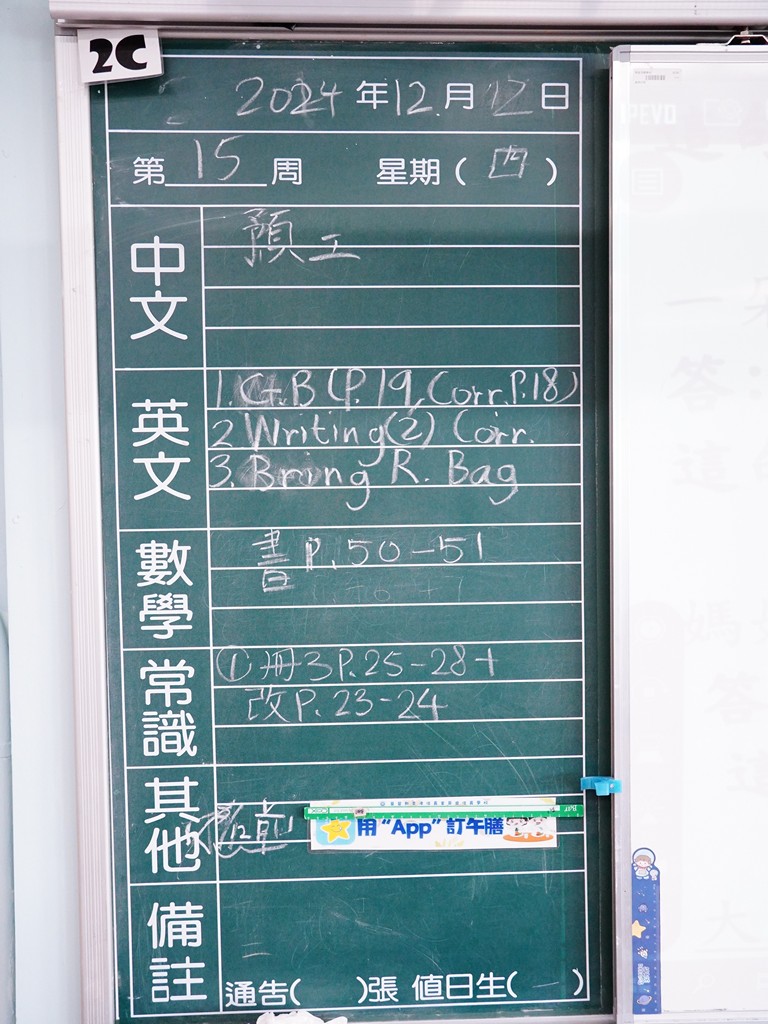 2C
2024年12月12日
第15周 星期(四)
中文
預工
英文
1. G.B (P.19, Corr.P.18)
2 Writing(2) Corr.
3. Bring R. Bag
數學
書P.50-51
常識
①冊3P.25-28+
改P.23-24
其他
用“App”訂午膳
備註
通告( )張 值日生( )
IPEVO
答：
答
大